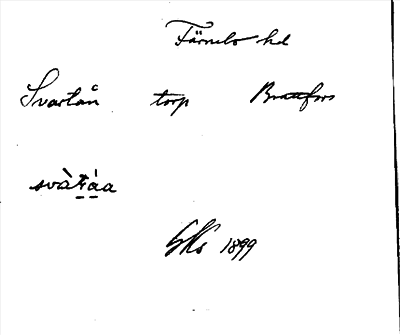 Färnebo hd
Svartån torp Brattfors
svàṭáa
GKs 1899